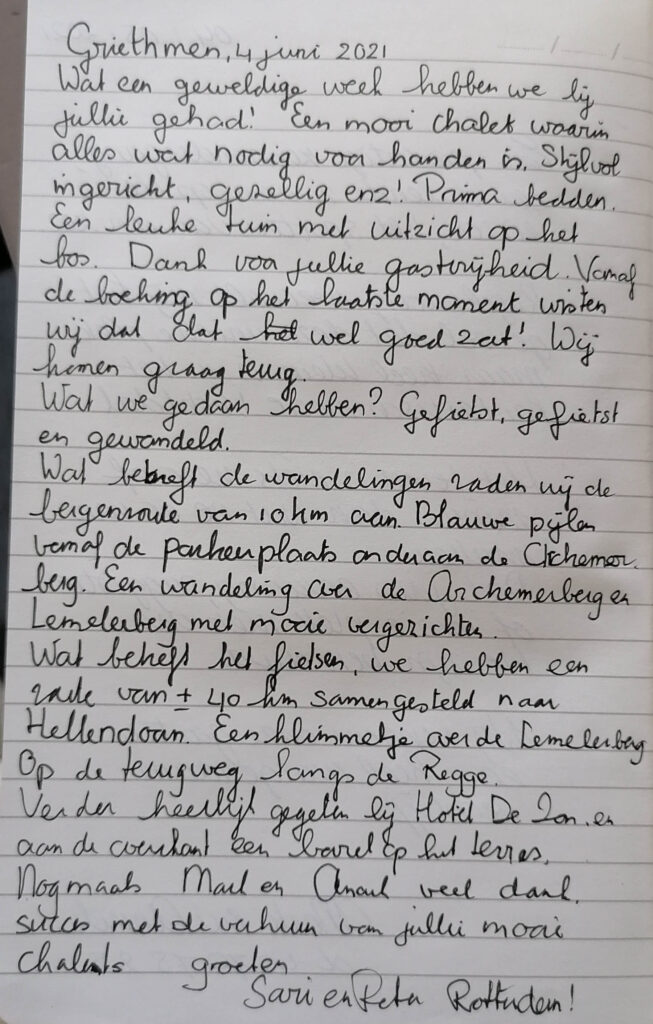 Griethmen, 4 juni 2021
Wat een geweldige week hebben we bij
jullie gehad! Een mooi chalet waarin
alles wat nodig voor handen is. Stijlvol
ingericht, gezellig enz! Prima bedden.
Een leuke tuin met uitzicht op het
bos. Dank voor jullie gastvrijheid. Vanaf
de boeking op het laatste moment wisten
wij dat dat het wel goed zat! Wij
komen graag terug.
Wat we gedaan hebben? Gefietst, gefietst
en gewandeld.
Wat betreft de wandelingen raden wij de
bergenroute van 10 km aan. Blauwe pijlen
vanaf de parkeerplaats onderaan de Archemer
berg. Een wandeling over de Archemerberg en
Lemelerberg met mooie vergezichten.
Wat betreft het fietsen, we hebben een
route van ± 40 km samengesteld naar
Hellendoorn. Een klimmetje over de Lemelerberg
Op de terugweg langs de Regge.
Verder heerlijk gegeten bij Hotel De Zon en
aan de overkant een borrel op het terras.
Nogmaals en veel dank,
succes met de verhuur van jullie mooie
chalets groeten
Sari en Peter Rotterdam!